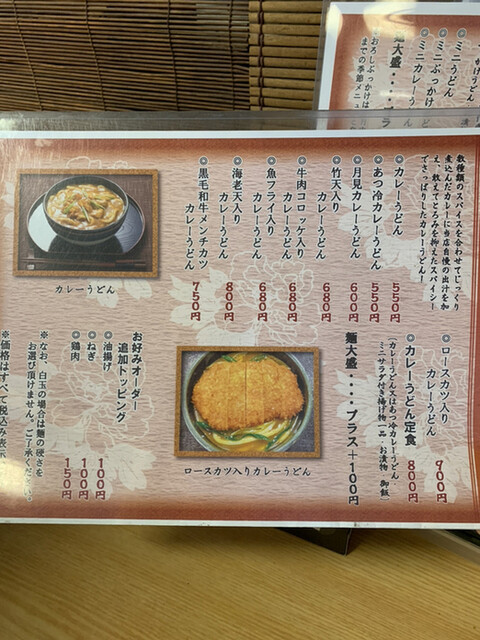 数種類のスパイスを合わせてじっくり
煮込んだカレーに当店自慢の出汁を加
え、敢えてとろみを抑えたスパイシー
でさっぱりしたカレーうどん！
◎カレーうどん 550円
◎あつ冷カレーうどん 550円
◎月見カレーうどん 600円
◎竹天入り
カレーうどん 680円
◎牛肉コロッケ入り
カレーうどん 680円
◎魚フライ入り
カレーうどん 680円
◎海老天入り
カレーうどん 800円
◎黒毛和牛メンチカツ
カレーうどん 750円
カレーうどん
◎ロースカツ入り
カレーうどん 900円
◎カレーうどん定食 800円
（カレーうどん又はあつ冷カレーうどん
ミニサラダ付き揚げ物一品・お漬物 御飯）
麺大盛・・・・プラス＋100円
ロースカツ入りカレーうどん
お好みオーダー
追加トッピング
◎油揚げ 100円
◎ねぎ 100円
◎鶏肉 150円
※なお、白玉の場合は麺の硬さを
お選び頂けません。ご了承ください。
※価格はすべて税込み表示
◎ミニうどん
◎ミニぶっかけ
◎ミニカレーう
麺大盛・・・・プラ
おろしぶっかけは
までの季節メニュ